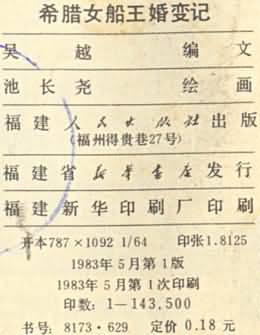 希腊女船王婚变记
吴越 编文
池长尧 绘画
福建人民出版社出版
(福州得贵巷27号)
福建省新华书店发行
福建新华印刷厂印刷
开本787×1092 1/64 印张1.8125
1983年5月第1版
1983年5月第1次印刷
印数：1—143,500
书号：8173·629 定价0.18元